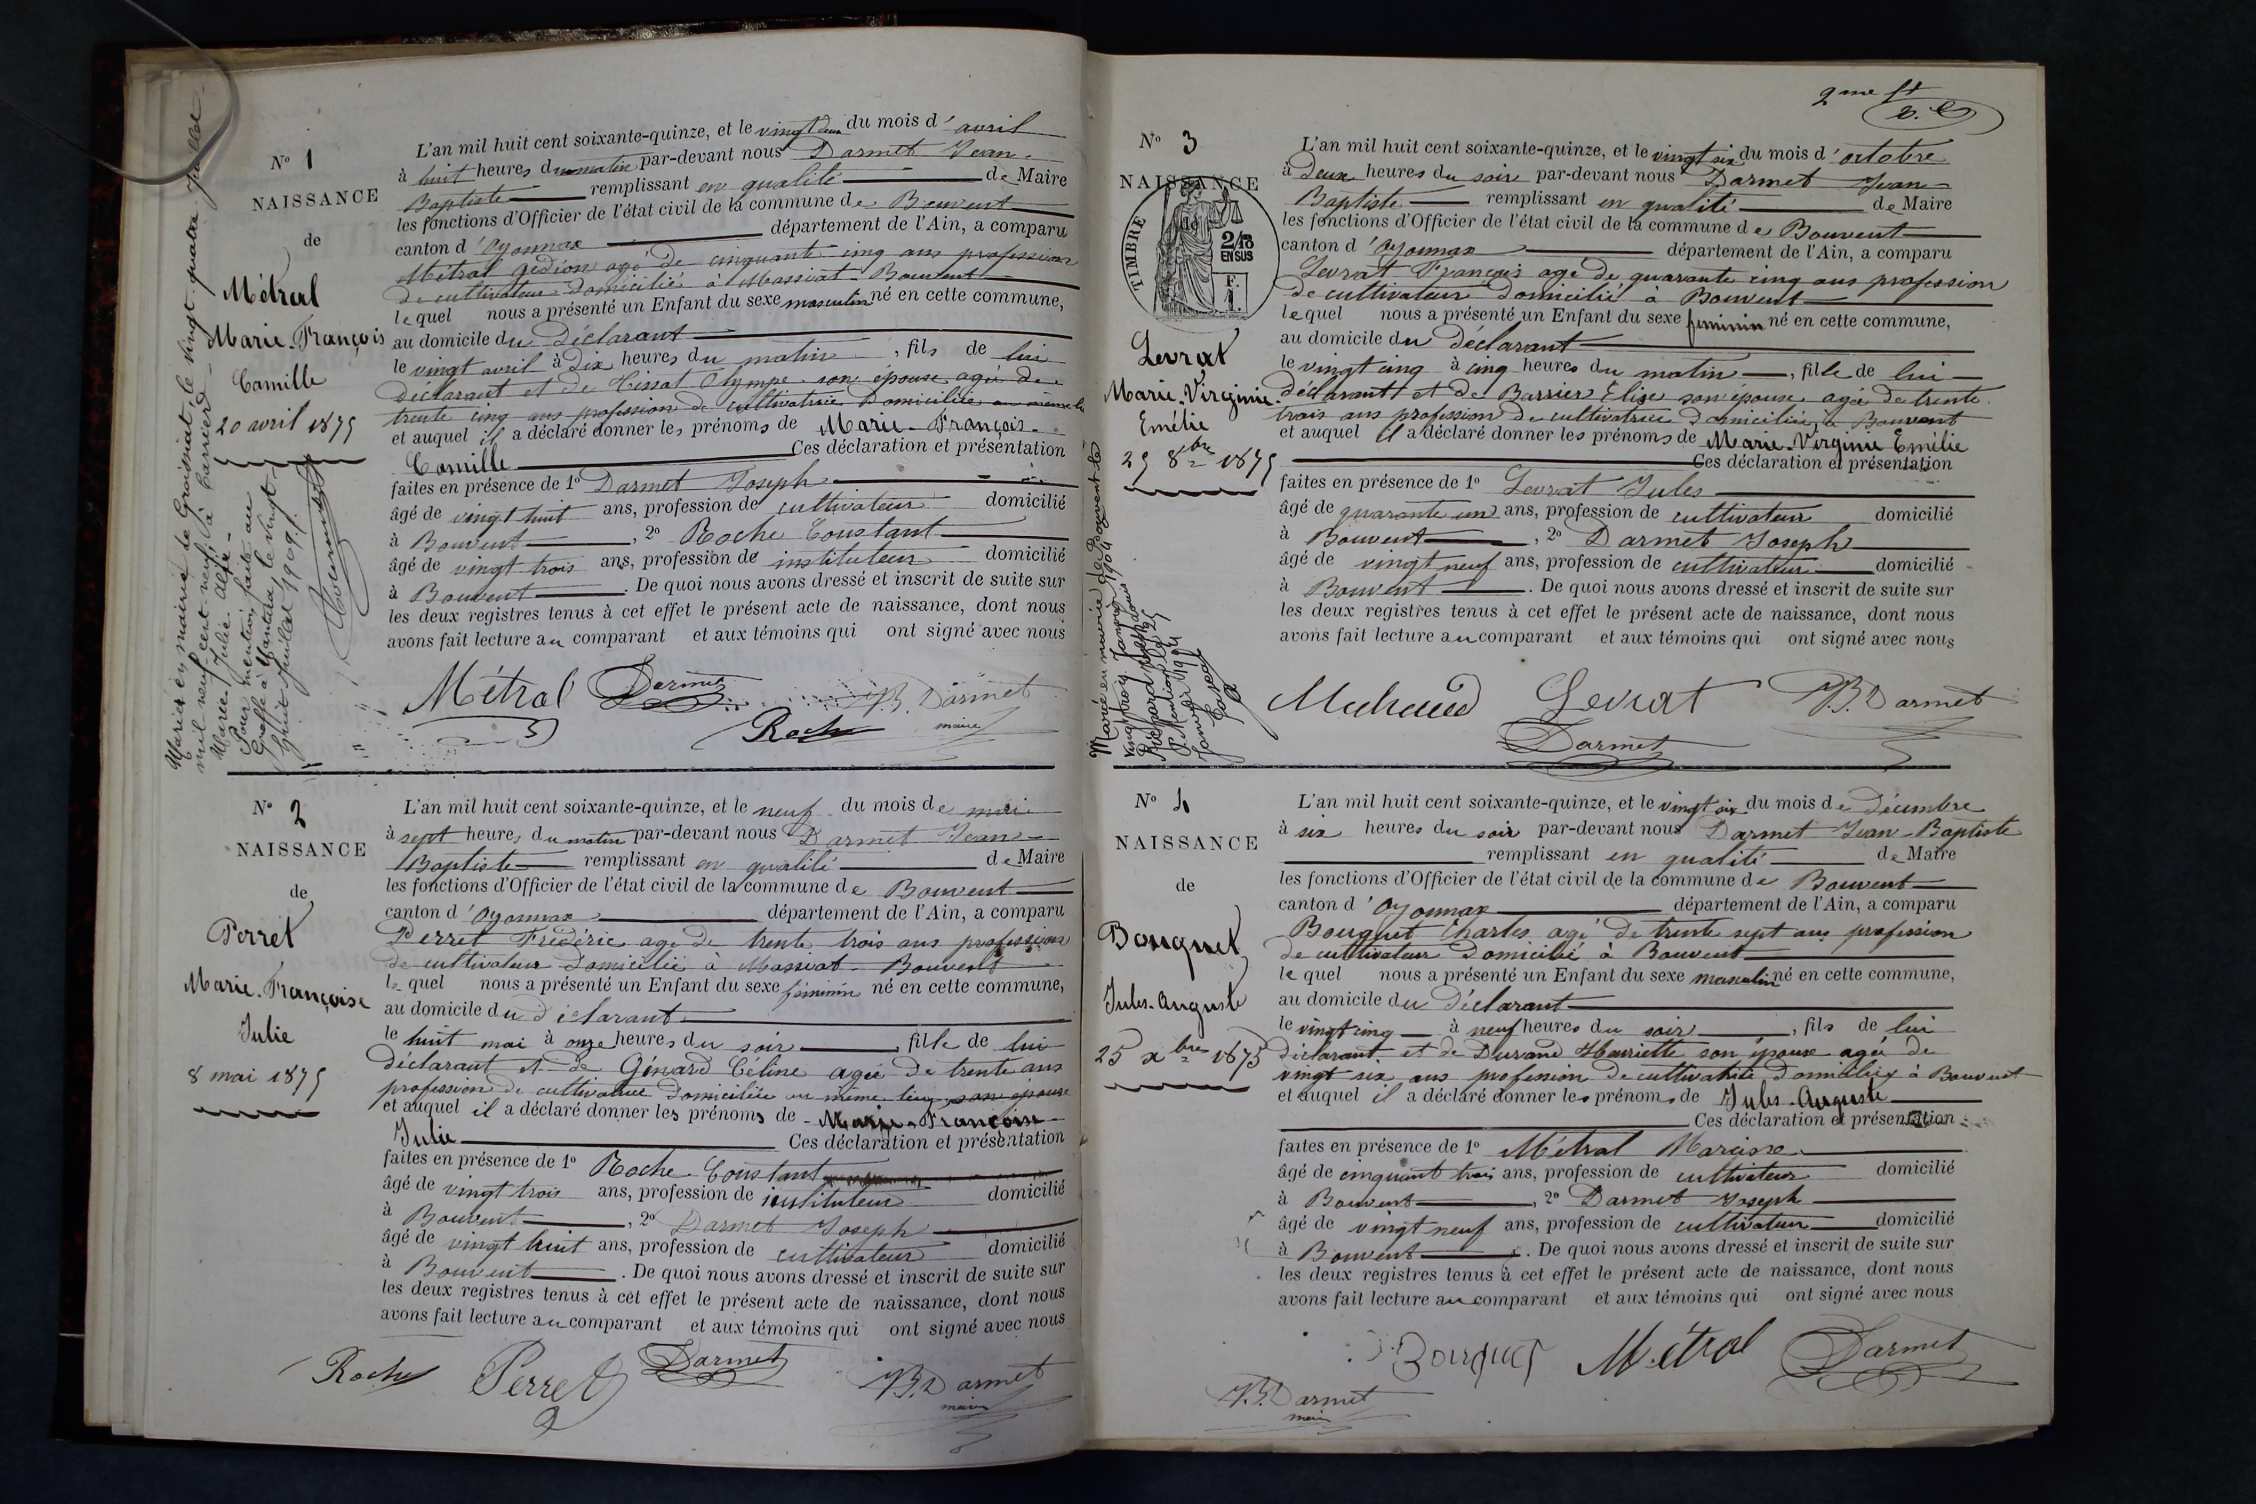 N° 1
NAISSANCE
de
Métral
Marie-François
Camille
20 avril 1875
Marié en mairie de Groissiat, le vingt quatre juillet
mil neuf cent neuf, à
Marie Julie Alix
Pour mention faite au
Greffe à Nantua, le vingt
huit juillet 1909.
L'an mil huit cent soixante-quinze, et le vingt deux du mois d'avril
à huit heures du matin par-devant nous Darmet Jean-
Baptiste remplissant en qualité de Maire
les fonctions d'Officier de l'état civil de la commune de Bouvent
canton d'Oyonnax département de l'Ain, a comparu
Métral Gédéon agé de cinquante cinq ans profession
de cultivateur domicilié à Massiat-Bouvent
lequel nous a présenté un Enfant du sexe masculin né en cette commune,
au domicile du Déclarant
le vingt avril à Dix heures du matin, fils de lui
déclarant et de Olympe son épouse agée de
trente cinq ans profession de cultivatrice Domiciliée au même
et auquel il a déclaré donner les prénoms de Marie-François-
Camille Ces déclaration et présentation
faites en présence de 1° Darmet Joseph
âgé de vingt huit ans, profession de cultivateur domicilié
à Bouvent, 2° Roche Constant
âgé de vingt trois ans, profession de instituteur domicilié
à Bouvent. De quoi nous avons dressé et inscrit de suite sur
les deux registres tenus à cet effet le présent acte de naissance, dont nous
avons fait lecture au comparant et aux témoins qui ont signé avec nous
Métral Darmet JB Darmet
Roche maire
N° 2
NAISSANCE
de
Perret
Marie-Françoise
Julie
8 mai 1875
L'an mil huit cent soixante-quinze, et le neuf du mois de mai
à sept heures du matin par-devant nous Darmet Jean-
Baptiste remplissant en qualité de Maire
les fonctions d'Officier de l'état civil de la commune de Bouvent
canton d'Oyonnax département de l'Ain, a comparu
Perret Frédéric agé de trente trois ans profession
de cultivateur domicilié à Massiat-Bouvent
lequel nous a présenté un Enfant du sexe féminin né en cette commune,
au domicile du déclarant
le huit mai à onze heures du soir, fille de lui
déclarant et de Génard Céline agée de trente ans
profession de cultivatrice domiciliée au même lieu, son épouse
et auquel il a déclaré donner les prénoms de Marie-Françoise
Julie Ces déclaration et présentation
faites en présence de 1° Roche Constant
âgé de vingt trois ans, profession de instituteur domicilié
à Bouvent, 2° Darmet Joseph
âgé de vingt huit ans, profession de cultivateur domicilié
à Bouvent. De quoi nous avons dressé et inscrit de suite sur
les deux registres tenus à cet effet le présent acte de naissance, dont nous
avons fait lecture au comparant et aux témoins qui ont signé avec nous
Roche Perret Darmet JB Darmet
maire
2me ft
N° 3
NAISSANCE
de
TIMBRE
2/10
EN SUS
F.
1.
Levrat
Marie-Virginie
Emélie
25 8bre 1875
Mariée en mairie de Bouvent le
vingt trois Janvier 1904
Janvier 1904
L'an mil huit cent soixante-quinze, et le vingt six du mois d'octobre
à Deux heures du soir par-devant nous Darmet Jean-
Baptiste remplissant en qualité de Maire
les fonctions d'Officier de l'état civil de la commune de Bouvent
canton d'Oyonnax département de l'Ain, a comparu
Levrat François agé de quarante cinq ans profession
de cultivateur domicilié à Bouvent
lequel nous a présenté un Enfant du sexe feminin né en cette commune,
au domicile du déclarant
le vingt cinq à cinq heures du matin, fille de lui
déclarant et de Barrier Elise son épouse agée de trente
trois ans profession de cultivatrice domiciliée à Bouvent
et auquel il a déclaré donner les prénoms de Marie-Virginie Emélie
Ces déclaration et présentation
faites en présence de 1° Levrat Jules
âgé de quarante un ans, profession de cultivateur domicilié
à Bouvent, 2° Darmet Joseph
âgé de vingt neuf ans, profession de cultivateur domicilié
à Bouvent. De quoi nous avons dressé et inscrit de suite sur
les deux registres tenus à cet effet le présent acte de naissance, dont nous
avons fait lecture au comparant et aux témoins qui ont signé avec nous
Levrat J.B. Darmet
Darmet
N° 4
NAISSANCE
de
Bouquet
Jules-Auguste
25 xbre 1875
L'an mil huit cent soixante-quinze, et le vingt six du mois de Décembre
à six heures du soir par-devant nous Darmet Jean-Baptiste
remplissant en qualité de Maire
les fonctions d'Officier de l'état civil de la commune de Bouvent
canton d'Oyonnax département de l'Ain, a comparu
Bouquet Charles agé de trente sept ans profession
de cultivateur domicilié à Bouvent
lequel nous a présenté un Enfant du sexe masculin né en cette commune,
au domicile du Déclarant
le vingt cinq à neuf heures du soir, fils de lui
déclarant et de Durand Henriette son épouse agée de
vingt six ans profession de cultivatrice domiciliée à Bouvent
et auquel il a déclaré donner les prénoms de Jules-Auguste
Ces déclaration et présentation
faites en présence de 1° Métral Narcisse
âgé de cinquante trois ans, profession de cultivateur domicilié
à Bouvent, 2° Darmet Joseph
âgé de vingt neuf ans, profession de cultivateur domicilié
à Bouvent. De quoi nous avons dressé et inscrit de suite sur
les deux registres tenus à cet effet le présent acte de naissance, dont nous
avons fait lecture au comparant et aux témoins qui ont signé avec nous
Bouquet Métral Darmet
J.B. Darmet
maire